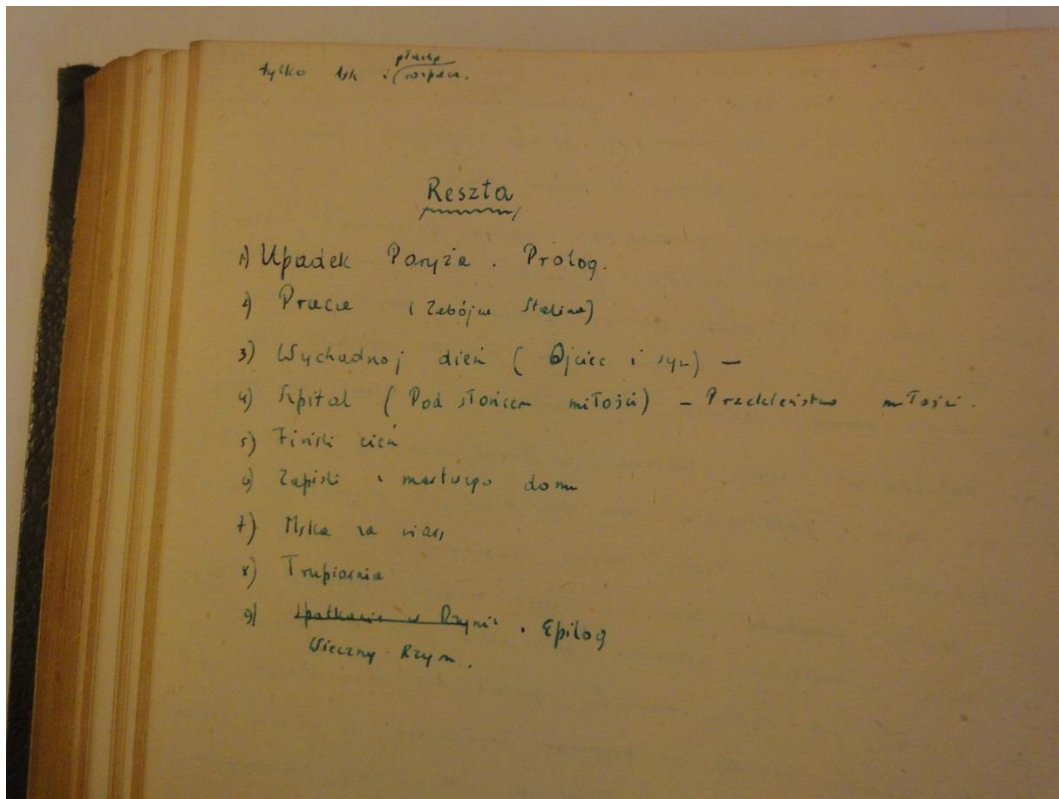 płaczę
tylko lęk i rozpacz.
Reszta
1) Upadek Paryża. Prolog.
2) Praca (Zabójca Stalina)
3) Wychadnoj dień (Ojciec i syn) —
4) Szpital (Pod słońcem miłości) – Przekleństwo miłości.
5) Fiński cień
6) Zapiski z martwego domu
7) Męka za wiarę
8) Trupiarnia
9) Spotkanie w Rzymie. Epilog
Wieczny Rzym.